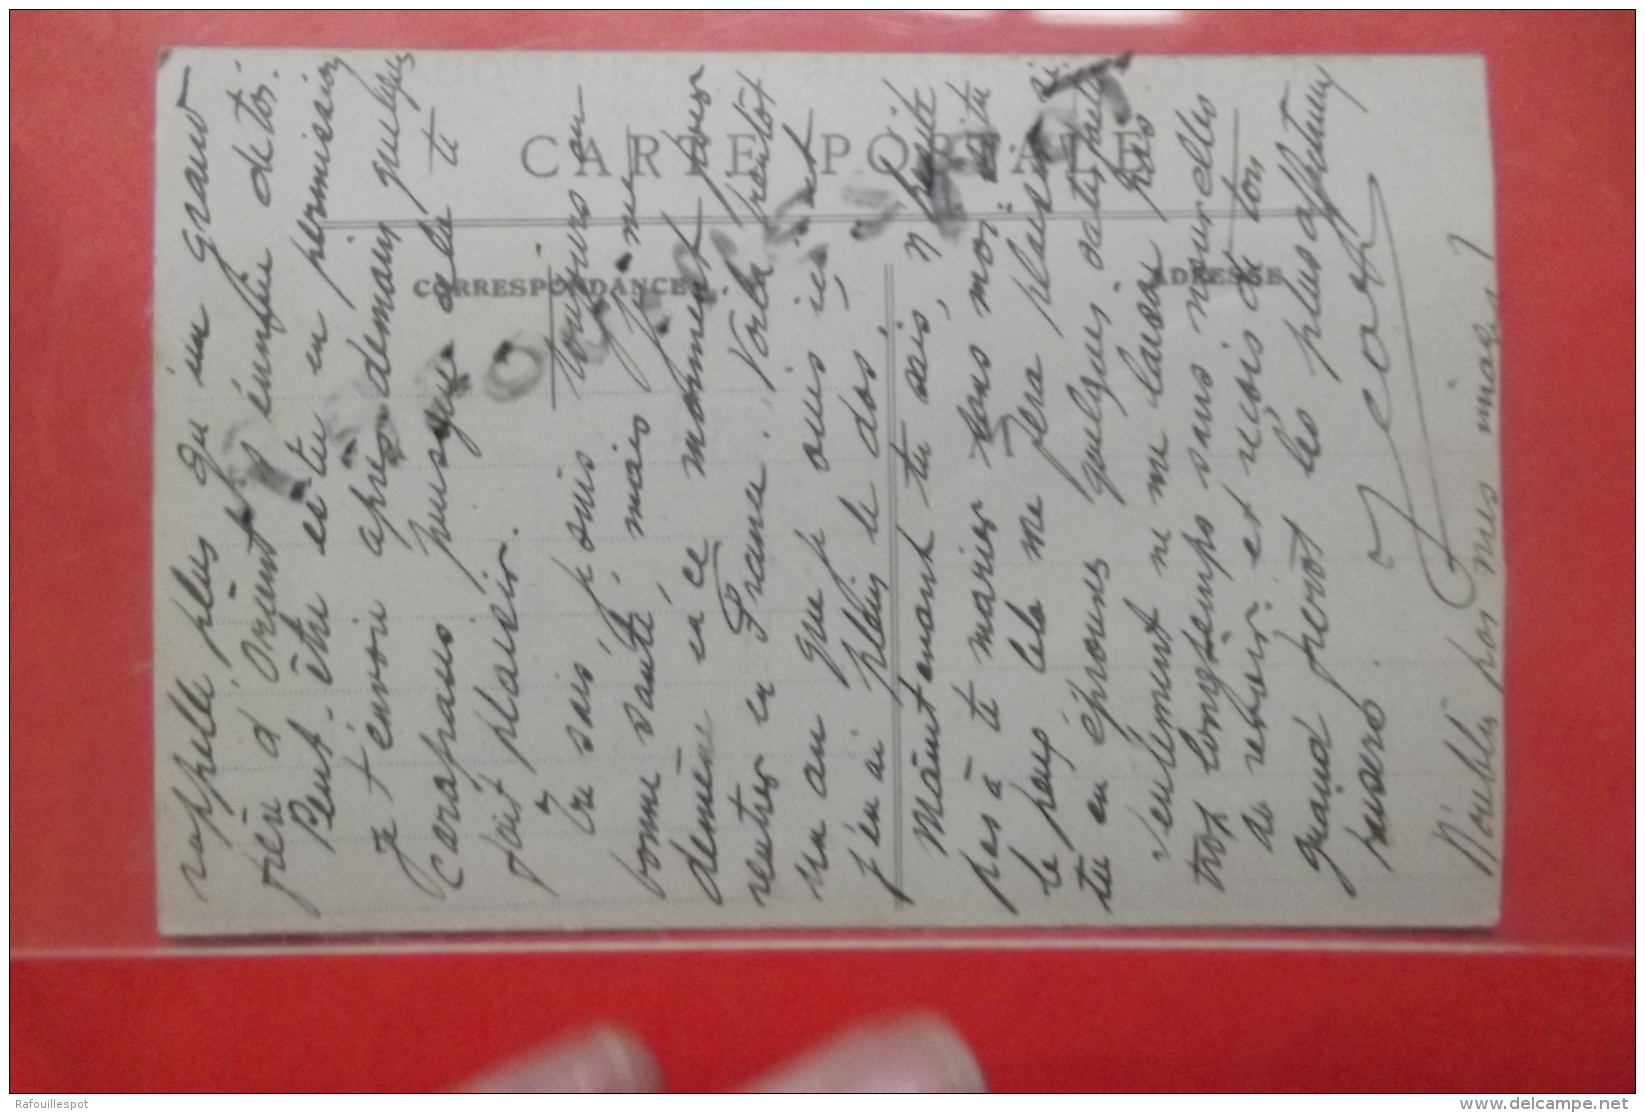 CARTE POSTALE
CORRESPONDANCE
ADRESSE
rappele plus qu'un grand
frère d'Orient s'ennuie de toi.
Peut-être es tu en permission
je t'envoi après demain quelques
carapaus puisque cela te
fait plaisir.
Tu sais, je suis toujours en
bonne santé, mais je me
demène en ce moment pour
rentrer en France. Voilà bientôt
un an que je suis ici et
j'en ai plein le dos.
Maintenant tu sais, n'hésite
pas à te marier sans moi si tu
le peux cela me fera plaisir si
tu en éprouves quelques satisfactions
seulement ne me laisse pas
trop longtemps sans nouvelles
de revoir et reçois de ton
grand frérot les plus affectueux
baisers.
Jean
N'oublie pas mes images ?
Rafouillespot
www.delcampe.net